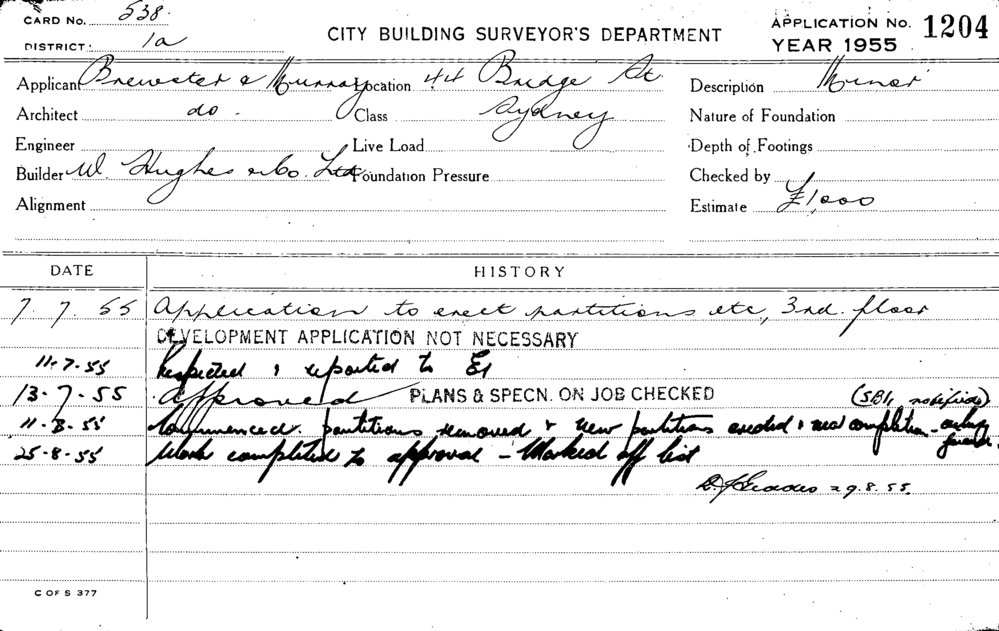 CARD No. 538.
DISTRICT. 1a
CITY BUILDING SURVEYOR'S DEPARTMENT
APPLICATION No. 1204
YEAR 1955
Applicant Brewster & Murray Location 44 Bridge St Description Minor
Architect do. Class Sydney Nature of Foundation
Engineer Live Load Depth of Footings
Builder W. Hughes & Co. Ltd Foundation Pressure Checked by
Alignment Estimate £1,000
DATE HISTORY
7. 7. 55 Application to erect partitions etc, 3rd. floor
DEVELOPMENT APPLICATION NOT NECESSARY
11.7.55 Inspected & reported to
13.7.55 Approved PLANS & SPECN. ON JOB CHECKED (SBI, notified)
11-8-55 Commenced. partitions removed & new partitions erected & near completion
25-8-55 Work completed to approval - Marked off list
29.8.55.
C OF S 377